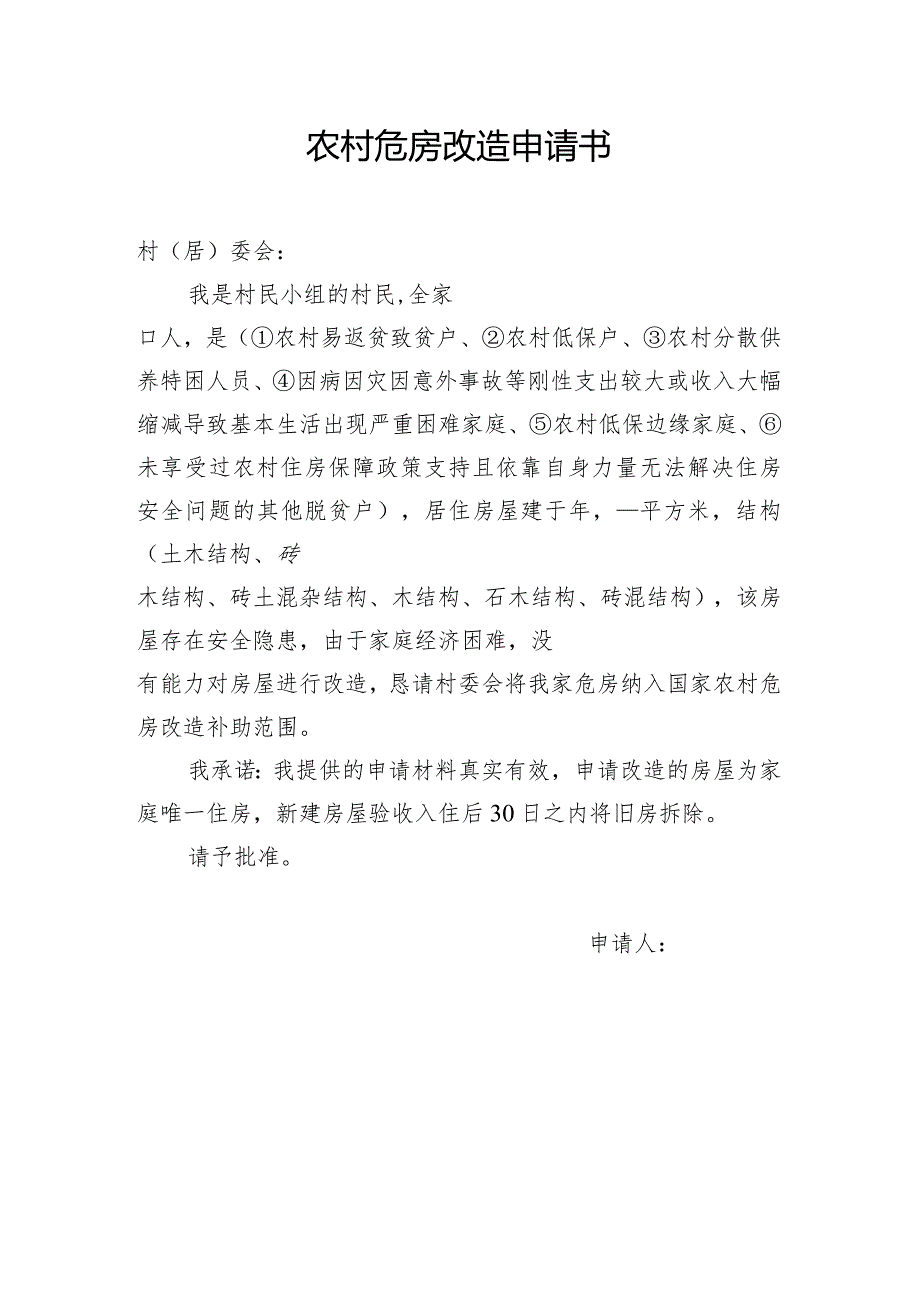 农村危房改造申请书
村（居）委会：
我是村民小组的村民,全家
口人，是（①农村易返贫致贫户、②农村低保户、③农村分散供
养特困人员、④因病因灾因意外事故等刚性支出较大或收入大幅
缩减导致基本生活出现严重困难家庭、⑤农村低保边缘家庭、⑥
未享受过农村住房保障政策支持且依靠自身力量无法解决住房
安全问题的其他脱贫户），居住房屋建于年，—平方米，结构
（土木结构、砖
木结构、砖土混杂结构、木结构、石木结构、砖混结构），该房
屋存在安全隐患，由于家庭经济困难，没
有能力对房屋进行改造，恳请村委会将我家危房纳入国家农村危
房改造补助范围。
我承诺：我提供的申请材料真实有效，申请改造的房屋为家
庭唯一住房，新建房屋验收入住后30日之内将旧房拆除。
请予批准。
申请人：